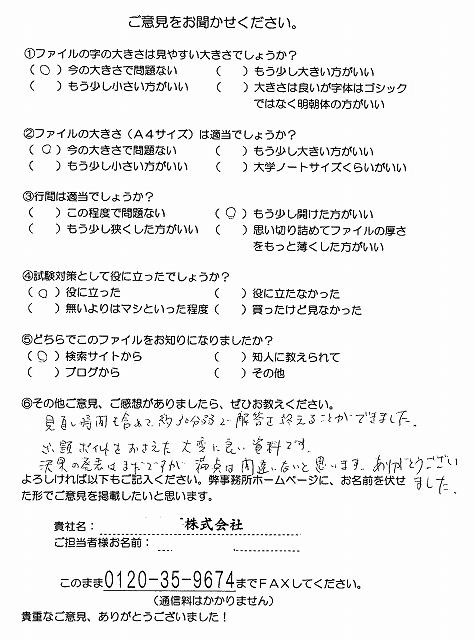 ご意見をお聞かせください。
①ファイルの字の大きさは見やすい大きさでしょうか？
（ ○ ）今の大きさで問題ない （　）もう少し大きい方がいい
（　）もう少し小さい方がいい （　）大きさは良いが字体はゴシック
ではなく明朝体の方がいい
②ファイルの大きさ（Ａ４サイズ）は適当でしょうか？
（ ○ ）今の大きさで問題ない （　）もう少し大きい方がいい
（　）もう少し小さい方がいい （　）大学ノートサイズくらいがいい
③行間は適当でしょうか？
（　）この程度で問題ない （ ○ ）もう少し開けた方がいい
（　）もう少し狭くした方がいい （　）思い切り詰めてファイルの厚さ
をもっと薄くした方がいい
④試験対策として役に立ったでしょうか？
（ ○ ）役に立った （　）役に立たなかった
（　）無いよりはマシといった程度 （　）買ったけど見なかった
⑤どちらでこのファイルをお知りになりましたか？
（ ○ ）検索サイトから （　）知人に教えられて
（　）ブログから （　）その他
⑥その他ご意見、ご感想がありましたら、ぜひお教えください。
見直し時間も含めて約 分 で解答を終えることができました。
出題ポイントをおさえた大変に良い資料です。
結果の発表はまだですが満点は間違いないと思います。ありがとうござい
ました。
よろしければ以下もご記入ください。弊事務所ホームページに、お名前を伏せ
た形でご意見を掲載したいと思います。
貴社名： 株式会社
ご担当者様お名前：
このまま0120-35-9674までＦＡＸしてください。
（通信料はかかりません）
貴重なご意見、ありがとうございました！